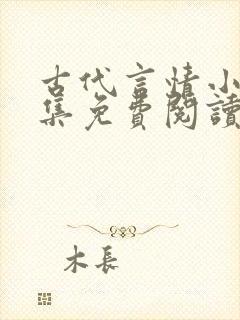 古代言情小
集免費閱讀
木長